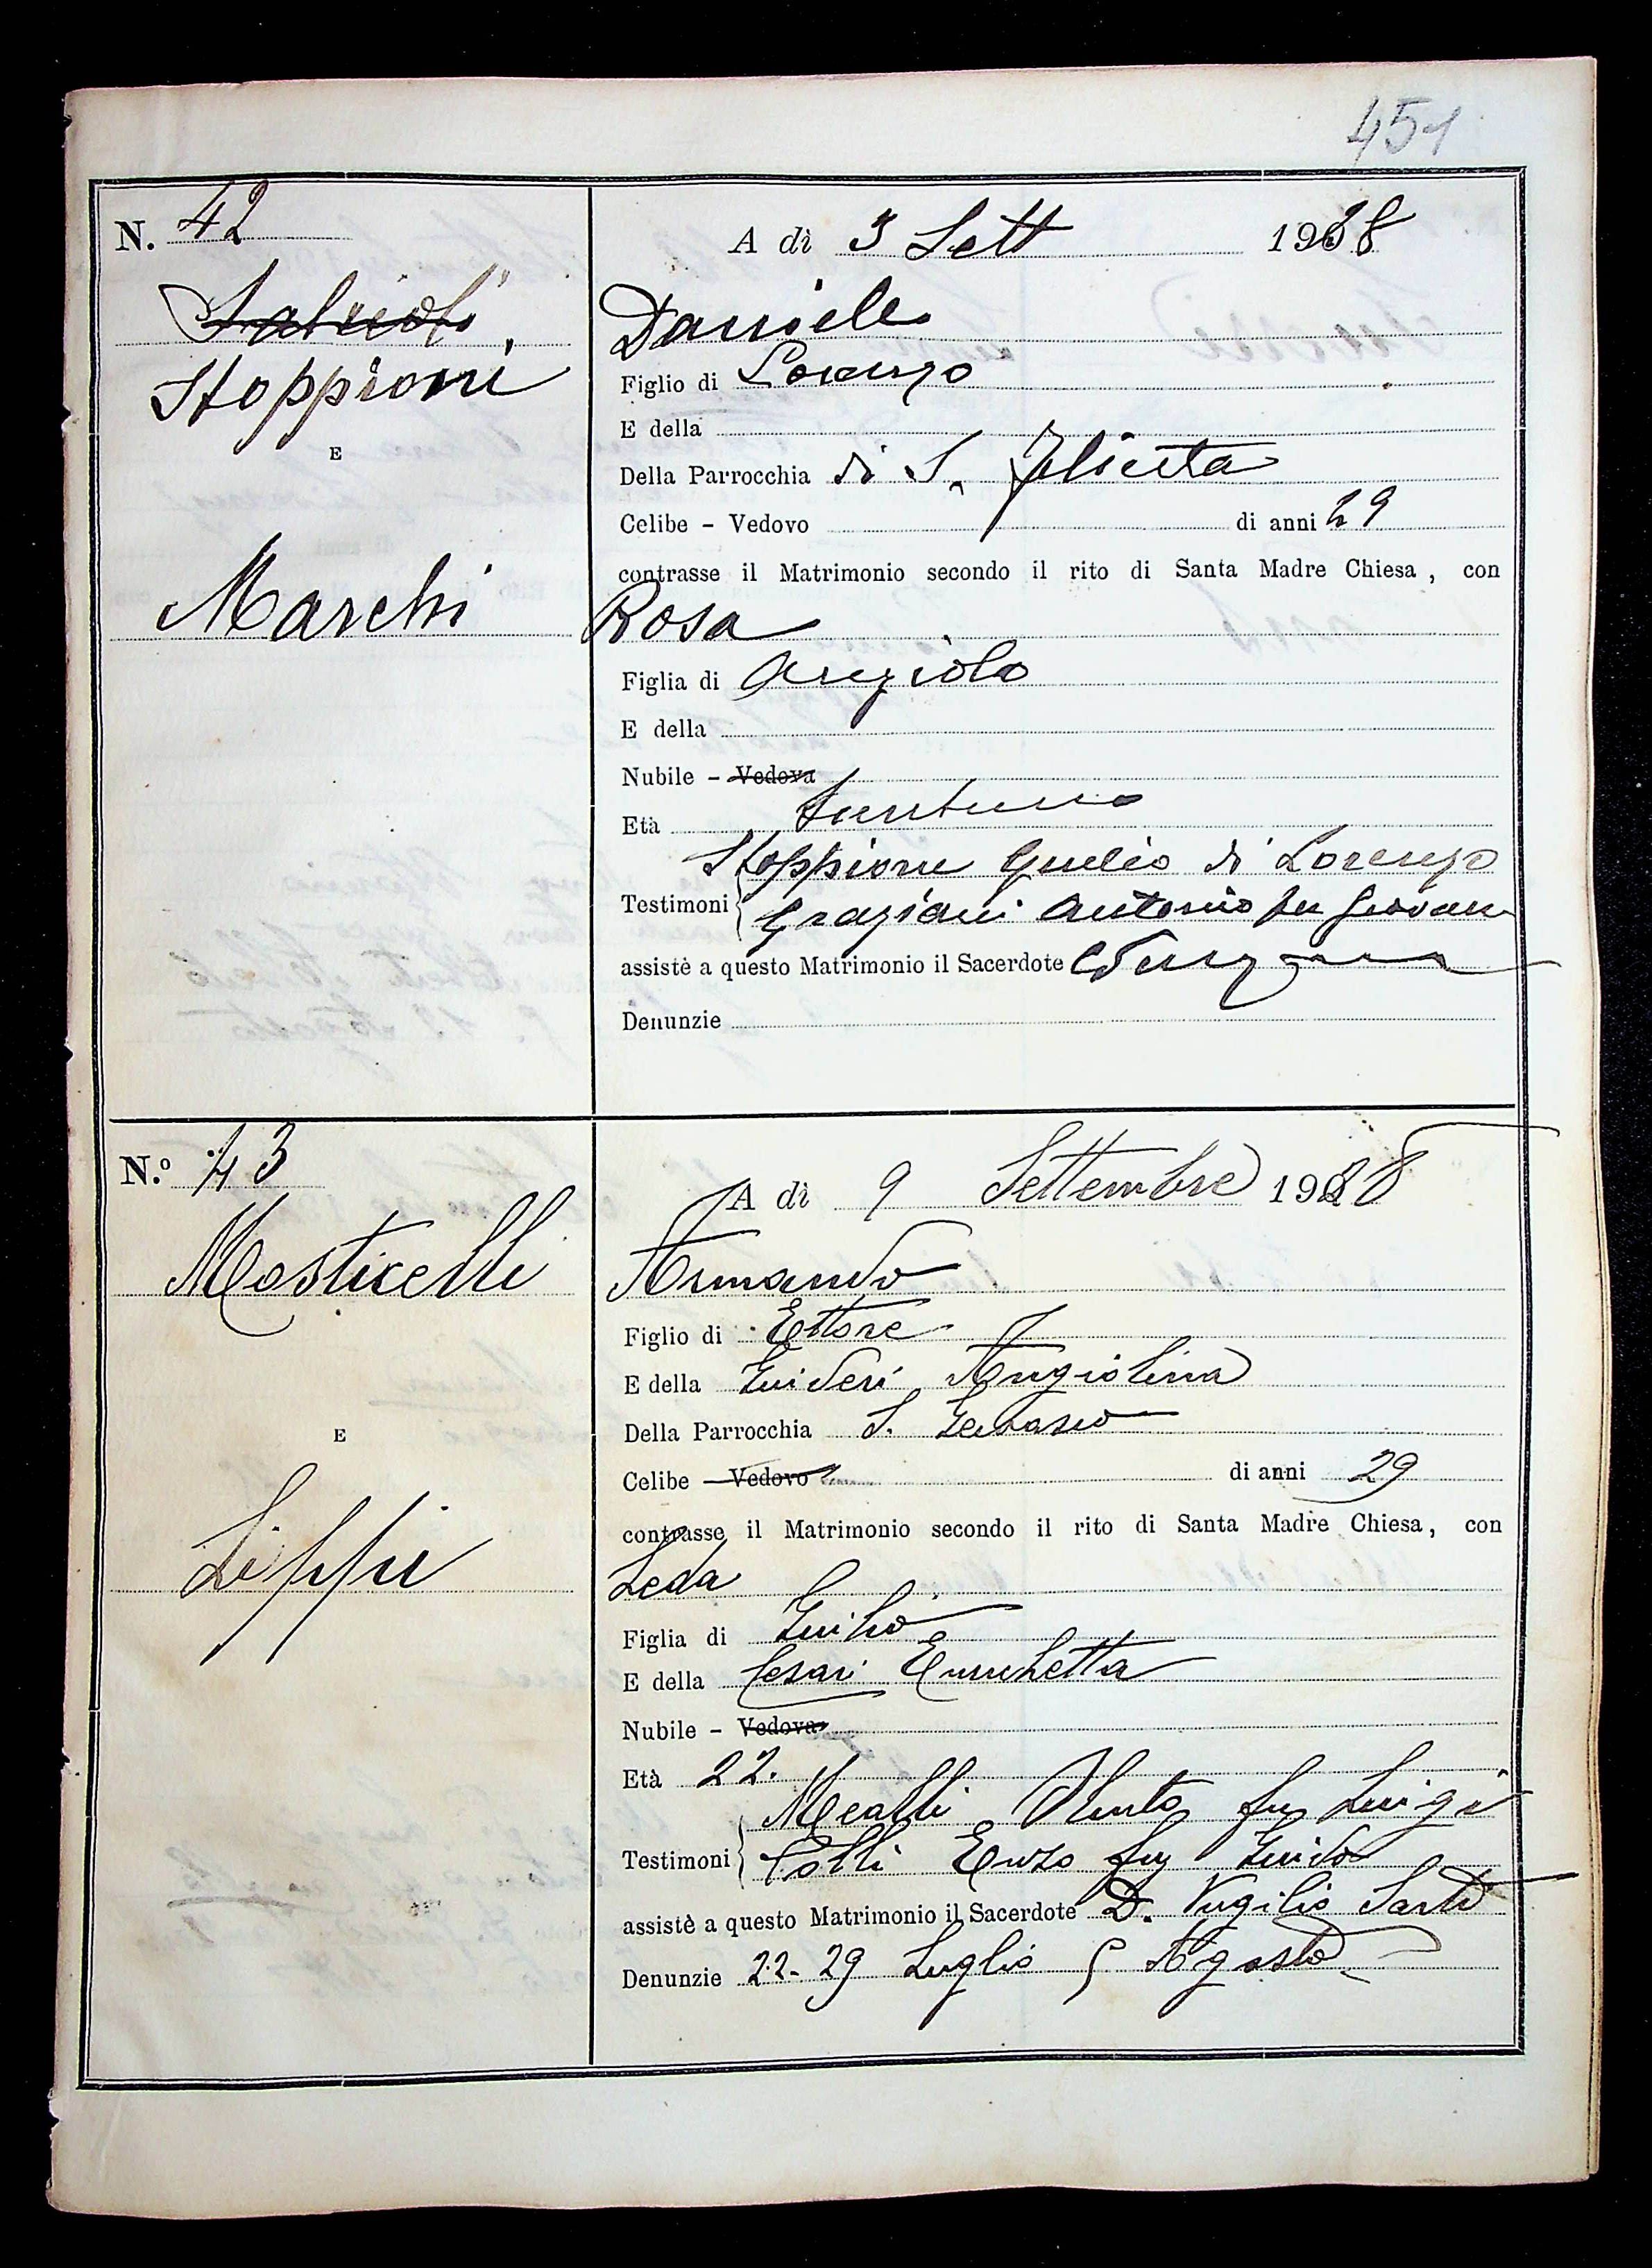 451
N. 42
A dì 3 Sett 1928
Stoppioni
Daniele
Figlio di Lorenzo
E della
Della Parrocchia di S. Felicita
Celibe - Vedovo di anni 29
E
contrasse il Matrimonio secondo il rito di Santa Madre Chiesa, con
Marchi
Rosa
Figlia di Angiolo
E della
Nubile - Vedova
Età
Stoppioni Giulio di Lorenzo
Testimoni Graziani Antonio fu Giovanni
assistè a questo Matrimonio il Sacerdote
Denunzie
N.º 43
A dì 9 Settembre 1928
Mosticelli
Armando
Figlio di Ettore
E della Guideri Angiolina
Della Parrocchia S. Gervasio
E
Celibe - Vedovo di anni 29
contrasse il Matrimonio secondo il rito di Santa Madre Chiesa, con
Lippi
Leda
Figlia di Giulio
E della Cesari Enrichetta
Nubile - Vedova
Età 22.
Mealli fu Luigi
Testimoni Colli Enzo fu Guido
assistè a questo Matrimonio il Sacerdote D. Virgilio Sarti
Denunzie 22-29 Luglio 5 Agosto